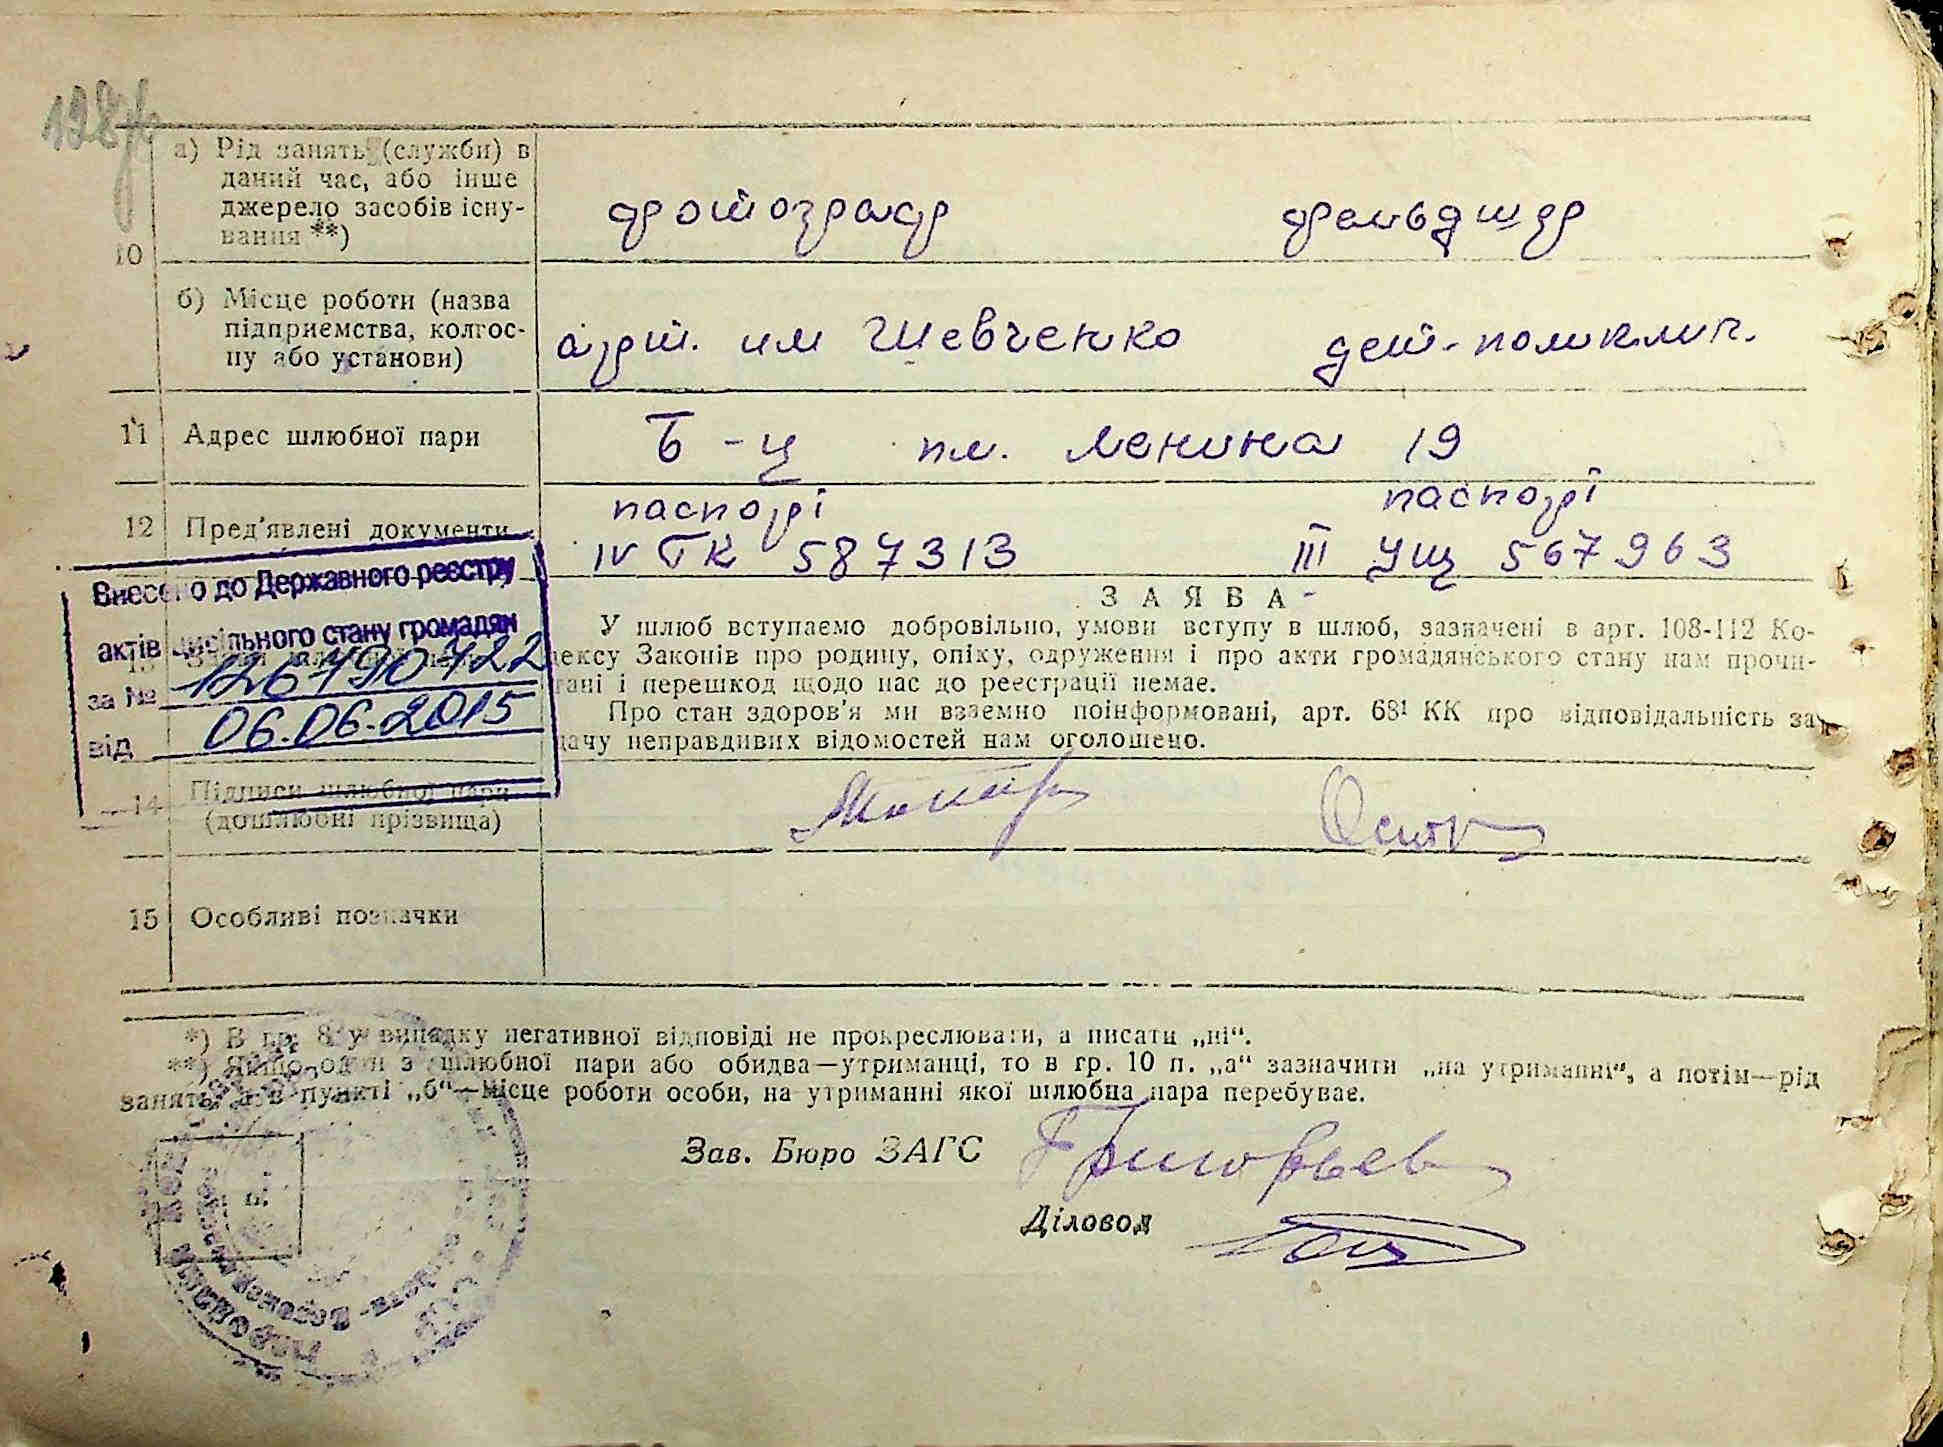 а) Рід занять (служби) в
даний час, або інше
джерело засобів існу-
вання **)
10
фотограф фельдшер
б) Місце роботи (назва
підприємства, колгос-
пу або установи)
арт. им Шевченко дет-поликлин.
11 Адрес шлюбної пари Б-ц пл. Ленина 19
12 Пред'явлені документи
паспорт паспорт
IV ТК 587313 III УЩ 567963
Внесено до Державного реєстру
актів цивільного стану громадян
за № 126790722
від 06.06.2015
ЗАЯВА
У шлюб вступаємо добровільно, умови вступу в шлюб, зазначені в арт. 108-112 Ко-
дексу Законів про родину, опіку, одруження і про акти громадянського стану нам прочи-
тані і перешкод щодо нас до реєстрації немає.
Про стан здоров'я ми взаємно поінформовані, арт. 68¹ КК про відповідальність за
дачу неправдивих відомостей нам оголошено.
14 Підписи шлюбної пари
(дошлюбні прізвища)
15 Особливі позначки
*) В гр. 8 у випадку негативної відповіді не прокреслювати, а писати „ні“.
**) Якщо один з шлюбної пари або обидва—утриманці, то в гр. 10 п. „а“ зазначити „на утриманні“, а потім—рід
занять, а в пункті „б“—місце роботи особи, на утриманні якої шлюбна пара перебуває.
Зав. Бюро ЗАГС Григорьев
Діловод